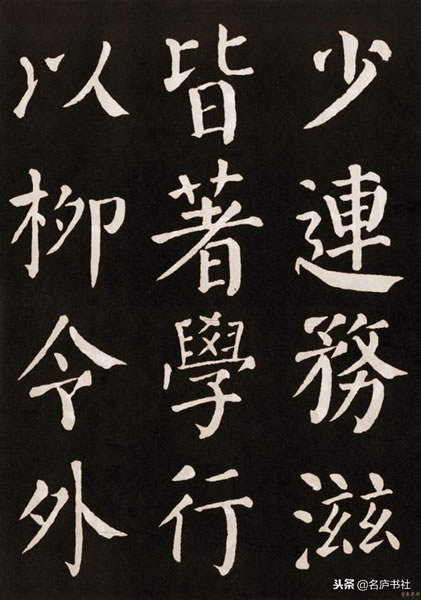 少連務滋
皆著學行
以柳令外
头条@名庐书社